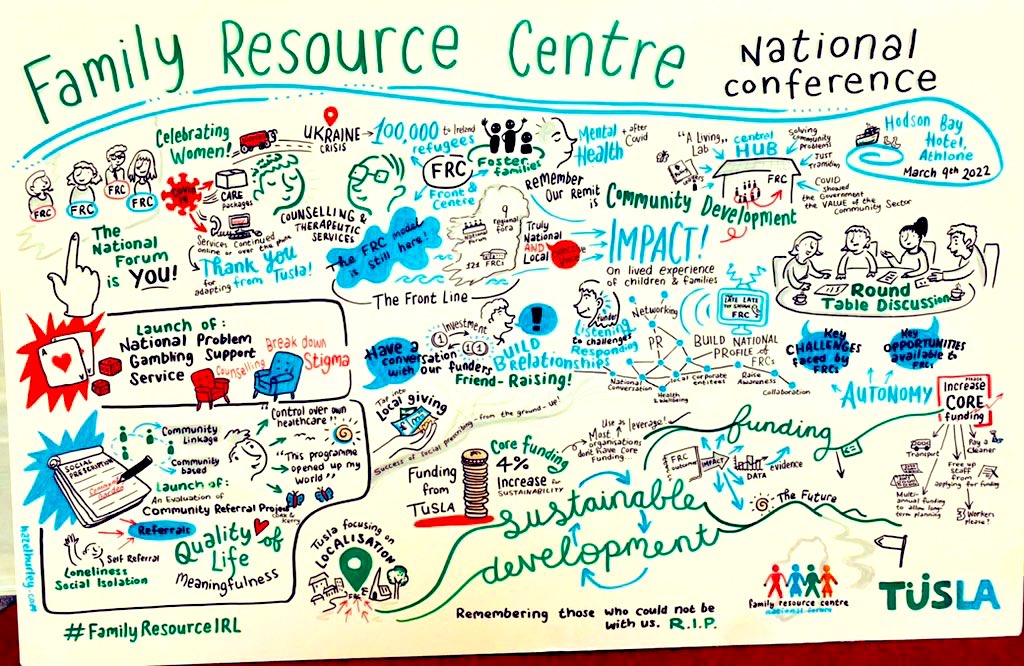 Family Resource Centre
National
conference
Hodson Bay
Hotel,
Athlone
March 9th 2022
Celebrating
Women!
UKRAINE
CRISIS
100,000 to Ireland
refugees
FRC
Front &
Centre
Foster
families
Mental + after
Health Covid
"A Living
Lab"
central
HUB
FRC
Solving
Community
Problems
JUST
Transition
COVID
showed
the Government
the VALUE of the
Community Sector
FRC
FRC
FRC
FRC
Covid 19
CARE
packages
Services Continued
online or over the phone
Thank You
for adapting from Tusla!
COUNSELLING &
THERAPEUTIC
SERVICES
The FRC model
is still here!
The Front Line
National
forum
9
regional
fora
121 FRCs
Truly
National
AND
Local
Remember
Our Remit
is
Community Development
IMPACT!
On lived experience
of children & families
The
National
Forum
is YOU!
Round
Table Discussion
Launch of:
National Problem
Gambling Support
Service
Counselling
Break down
Stigma
Have a
conversation
with our funders
Investment
BUILD
RELATIONSHIPS
Friend-Raising!
funder
Listening
to challenges
Responding
Networking
PR
BUILD NATIONAL
PROFILE of
FRCs
LATE LATE
TOY SHOW
FRC
National
Conversation
Local Corporate
entitees
Health
& Wellbeing
Raise
Awareness
Collaboration
Key
CHALLENGES
faced by
FRCs
Key
OPPORTUNITIES
available to
FRCs
AUTONOMY
Please
Increase
CORE
funding
Transport
Pay a
Cleaner
Free up
Staff
from
applying for funding
Multi-
annual funding
to allow long-
term planning
3 Workers
please!
Tap into
Local giving
from the ground-up!
Success of Social prescribing
SOCIAL
PRESCRIPTION
Community
Garden
Community
Linkage
Community
based
"Control over own
healthcare"
"This programme
opened up my
World"
Launch of:
An Evaluation of
Community Referral Project
Cork & Kerry
Referrals
Self Referral
Loneliness
Social Isolation
Quality of
Life
Meaningfulness
Funding
from
TUSLA
Core funding
4%
Increase
for SUSTAINABILITY
Use as leverage!
Most
organisations
dont have Core
Funding...
FRC
outcomes
IMPACT
evidence
DATA
funding
€
sustainable
development
The Future
Tusla focusing on
LOCALISATION
FRC
hazelhurley.com
#FamilyResourceIRL
Remembering those who could not be
with us. R.I.P.
family resource centre
national forum
TUSLA